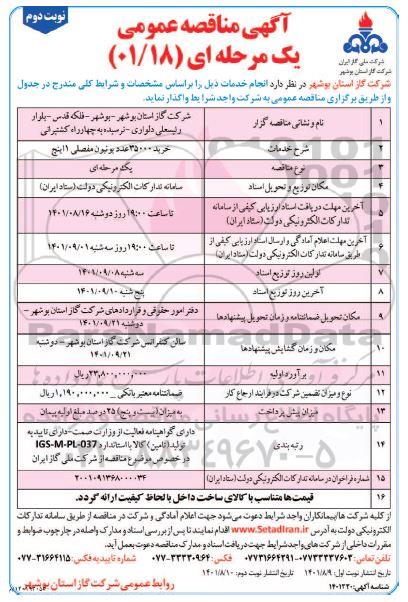 نوبت دوم
آگهی مناقصه عمومی
یک مرحله ای (۰۱/۱۸)
شرکت ملی گاز ایران
شرکت گاز استان بوشهر
شرکت گاز استان بوشهر در نظر دارد انجام خدمات ذیل را براساس مشخصات و شرایط کلی مندرج در جدول
و از طریق برگزاری مناقصه عمومی به شرکت واجد شرایط واگذار نماید.
۱ نام و نشانی مناقصه گزار شرکت گاز استان بوشهر - بوشهر - فلکه قدس - بلوار
رئیسعلی دلواری - نرسیده به چهارراه کشتیرانی
۲ شرح خدمات خرید ۳۵۰۰۰ عدد یونیون مفصلی ۱ اینچ
۳ نوع مناقصه یک مرحله ای
۴ مکان توزیع و تحویل اسناد سامانه تدارکات الکترونیکی دولت (ستاد ایران)
۵ آخرین مهلت دریافت اسناد ارزیابی کیفی از سامانه
تدارکات الکترونیکی دولت (ستاد ایران) تا ساعت ۱۹:۰۰ روز دوشنبه ۱۴۰۱/۰۸/۱۶
۶ آخرین مهلت اعلام آمادگی و ارسال اسناد ارزیابی کیفی از
طریق سامانه تدارکات الکترونیکی دولت (ستاد ایران) تا ساعت ۱۹:۰۰ روز سه شنبه ۱۴۰۱/۰۹/۰۱
۷ اولین روز توزیع اسناد سه شنبه ۱۴۰۱/۰۹/۰۸
۸ آخرین روز توزیع اسناد پنج شنبه ۱۴۰۱/۰۹/۱۰
۹ مکان تحویل ضمانتنامه و زمان تحویل پیشنهادها دفتر امور حقوقی و قراردادهای شرکت گاز استان بوشهر -
دوشنبه ۱۴۰۱/۰۹/۲۱
۱۰ مکان و زمان گشایش پیشنهادها سالن کنفرانس شرکت گاز استان بوشهر - دوشنبه
۱۴۰۱/۰۹/۲۱
۱۱ برآورد اولیه ۲۳,۸۰۰,۰۰۰,۰۰۰ ریال
۱۲ نوع و میزان تضمین شرکت در فرایند ارجاع کار ضمانتنامه معتبر بانکی - ۱,۱۹۰,۰۰۰,۰۰۰ ریال
۱۳ میزان پیش پرداخت به میزان (بیست و پنج) ۲۵ درصد مبلغ اولیه پیمان
۱۴ رتبه بندی دارای گواهینامه فعالیت از وزارت صمت - دارای تاییدیه
تولید (تامین) کالا با استاندارد IGS-M-PL-037
در خصوص موضوع مناقصه از شرکت ملی گاز ایران
۱۵ شماره فراخوان در سامانه تدارکات الکترونیکی دولت (ستاد ایران) ۲۰۰۱۰۹۱۳۶۸۰۰۰۰۳۴
۱۶ قیمت ها متناسب با کالای ساخت داخل با لحاظ کیفیت ارائه گردد.
از کلیه شرکت ها/پیمانکاران واجد شرایط دعوت می شود جهت اعلام آمادگی و شرکت در مناقصه از طریق سامانه تدارکات
الکترونیکی دولت به آدرس www.SetadIran.ir اقدام نمایند تا پس از بررسی اسناد و مدارک واصله در چارچوب ضوابط و
مقررات داخلی از شرکت های واجد شرایط جهت دریافت اسناد و مدارک مناقصه دعوت بعمل آید.
تلفن تماس: ۰۷۷۳۳۳۳۷۶۰۳ - ۰۷۷۳۱۶۶۴۲۹۱ شماره فکس: ۳۳۳۳۰۹۶۴-۰۷۷ شماره تاییدیه فکس: ۳۱۶۶۴۱۱۵-۰۷۷
تاریخ انتشار نوبت اول: ۱۴۰۱/۸/۹ تاریخ انتشار نوبت دوم: ۱۴۰۱/۸/۱۰
شناسه آگهی: ۱۴۰۱۲۲۰ روابط عمومی شرکت گاز استان بوشهر